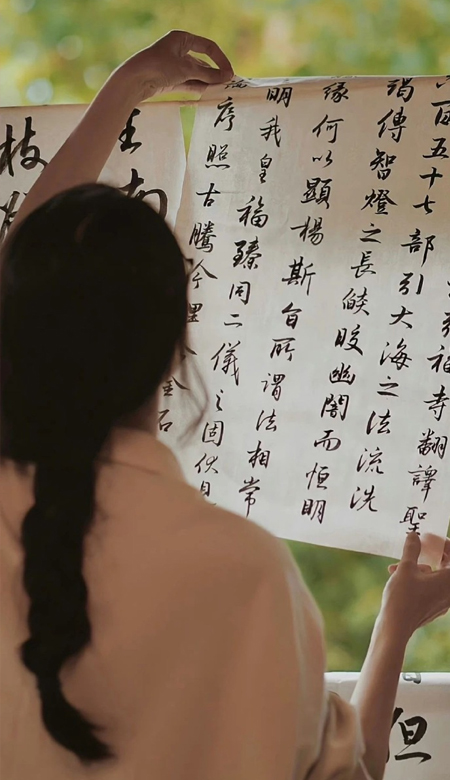 福寺翻譯聖
六百五十七部引大海之法流洗
竭傳智燈之長焰皎幽闇而恒明
緣何以顯揚斯旨所謂法相常
明我皇福臻同二儀之固伏見
序照古騰今理含金石
枝
但